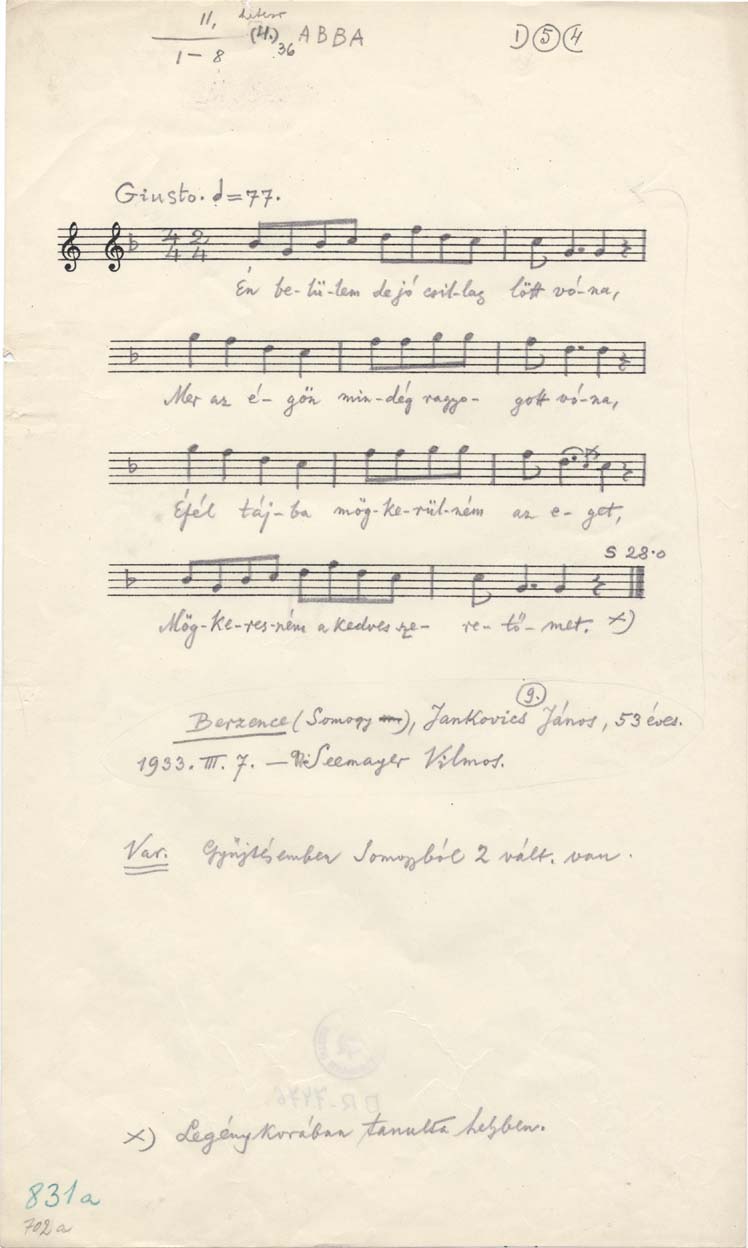 11, heteros
1 – 8 (4.) 36 ABBA
1) 5 (4
Giusto. d = 77.
4 2
4 4
Én be-lü-lem de jó csil-lag lött vó-na,
Mer az é-gön min-dég ragyo-gott vó-na,
Éfél táj-ba mög-ke-rül-ném az e-get,
S 28.0
Mög-ke-res-ném a kedves sze-re-tő-met. x)
9.
Berzence (Somogy), Jankovics János, 53 éves.
1933. III. 7. — Seemayer Vilmos.
Var. Gyűjtésemben Somogyból 2 vált. van.
BR-7476
x) Legénykorában tanulta helyben.
831a
702a